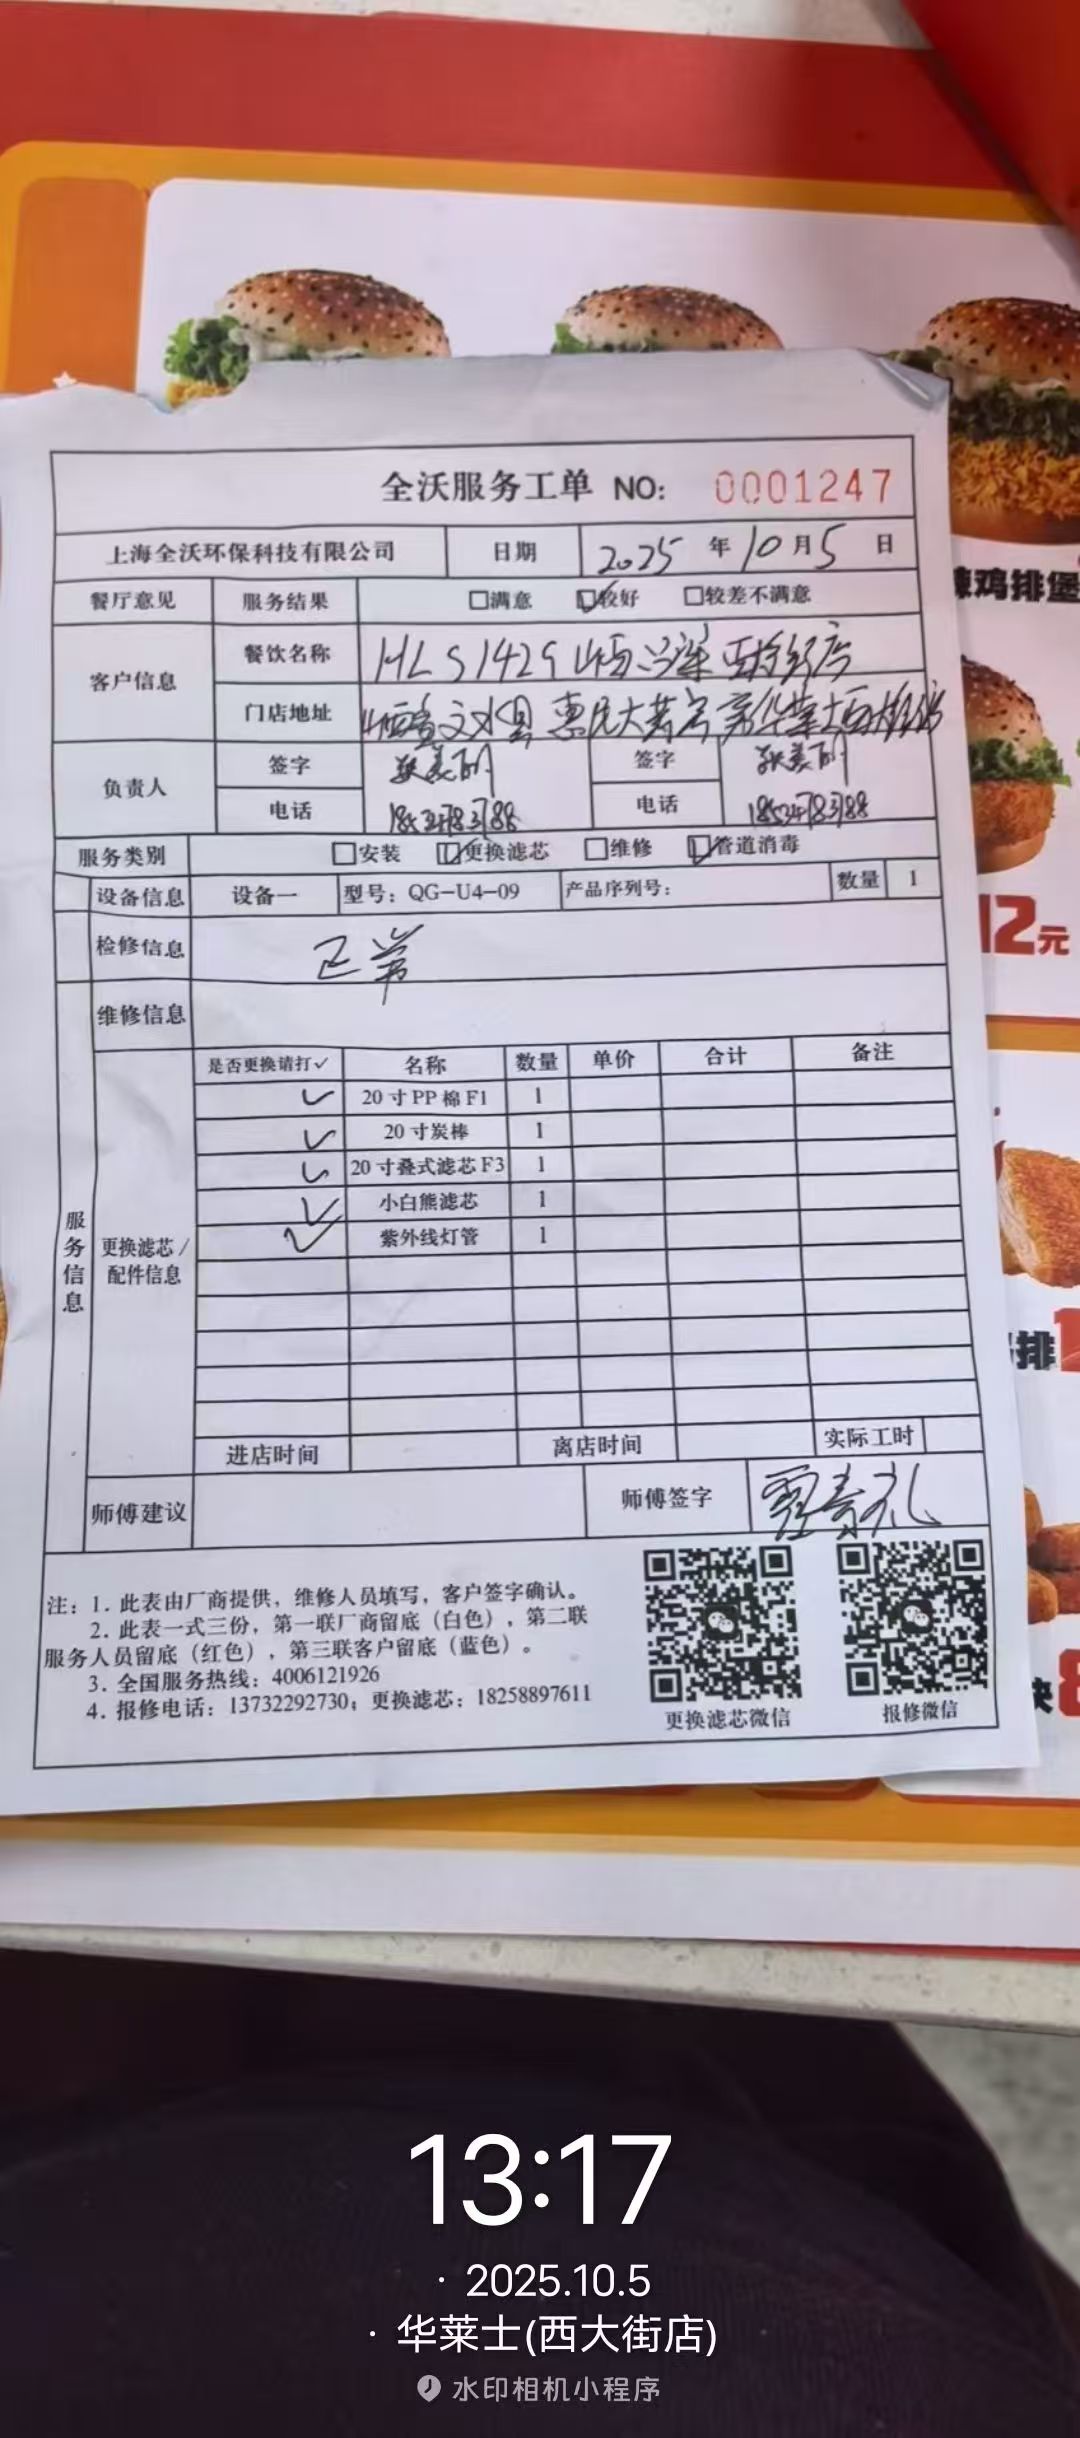 全沃服务工单 NO: 0001247
上海全沃环保科技有限公司 日期 2025 年 10 月 5 日
餐厅意见 服务结果 □满意 ☑较好 □较差不满意
客户信息 餐饮名称 HLS1429山西
门店地址 山西省文水县惠民大药房旁华莱士西大街店
负责人 签字 签字
电话 电话
服务类别 □安装 ☑更换滤芯 □维修 ☑管道消毒
设备信息 设备一 型号：QG-U4-09 产品序列号： 数量 1
检修信息 正常
维修信息
服务信息
更换滤芯/
配件信息
是否更换请打✓ 名称 数量 单价 合计 备注
✓ 20寸PP棉F1 1
✓ 20寸炭棒 1
✓ 20寸叠式滤芯F3 1
✓ 小白熊滤芯 1
✓ 紫外线灯管 1
进店时间 离店时间 实际工时
师傅建议 师傅签字
注：1. 此表由厂商提供，维修人员填写，客户签字确认。
2. 此表一式三份，第一联厂商留底（白色），第二联
服务人员留底（红色），第三联客户留底（蓝色）。
3. 全国服务热线：4006121926
4. 报修电话：13732292730；更换滤芯：18258897611
更换滤芯微信 报修微信
鸡排堡
12元
排
13:17
· 2025.10.5
· 华莱士(西大街店)
水印相机小程序